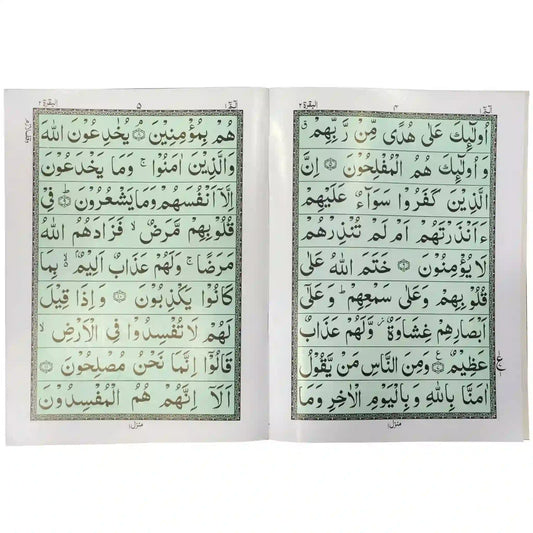 البقرة ٢
۴
الٓمّٓ ١
اُولٰٓئِكَ عَلٰى هُدًى مِّنْ رَّبِّهِمْ ۗ
وَ اُولٰٓئِكَ هُمُ الْمُفْلِحُوْنَ ۝ اِنَّ
الَّذِيْنَ كَفَرُوْا سَوَآءٌ عَلَيْهِمْ
ءَاَنْذَرْتَهُمْ اَمْ لَمْ تُنْذِرْهُمْ
لَا يُؤْمِنُوْنَ ۝ خَتَمَ اللّٰهُ عَلٰى
قُلُوْبِهِمْ وَعَلٰى سَمْعِهِمْ ؕ وَعَلٰٓى
اَبْصَارِهِمْ غِشَاوَةٌ ؗ وَّلَهُمْ عَذَابٌ
عَظِيْمٌ ۝ وَمِنَ النَّاسِ مَنْ يَّقُوْلُ
اٰمَنَّا بِاللّٰهِ وَ بِالْيَوْمِ الْاٰخِرِ وَمَا
منزل ١
البقرة ٢
۵
الٓمّٓ ١
هُمْ بِمُؤْمِنِيْنَ ۝ يُخٰدِعُوْنَ اللّٰهَ
وَالَّذِيْنَ اٰمَنُوْا ۚ وَمَا يَخْدَعُوْنَ
اِلَّاۤ اَنْفُسَهُمْ وَمَا يَشْعُرُوْنَ ۝ؕ فِيْ
قُلُوْبِهِمْ مَّرَضٌ ۙ فَزَادَهُمُ اللّٰهُ
مَرَضًا ۚ وَلَهُمْ عَذَابٌ اَلِيْمٌۢ ۙ۬ بِمَا
كَانُوْا يَكْذِبُوْنَ ۝ وَاِذَا قِيْلَ
لَهُمْ لَا تُفْسِدُوْا فِى الْاَرْضِ ۙ
قَالُوْۤا اِنَّمَا نَحْنُ مُصْلِحُوْنَ ۝
اَلَاۤ اِنَّهُمْ هُمُ الْمُفْسِدُوْنَ
منزل ١